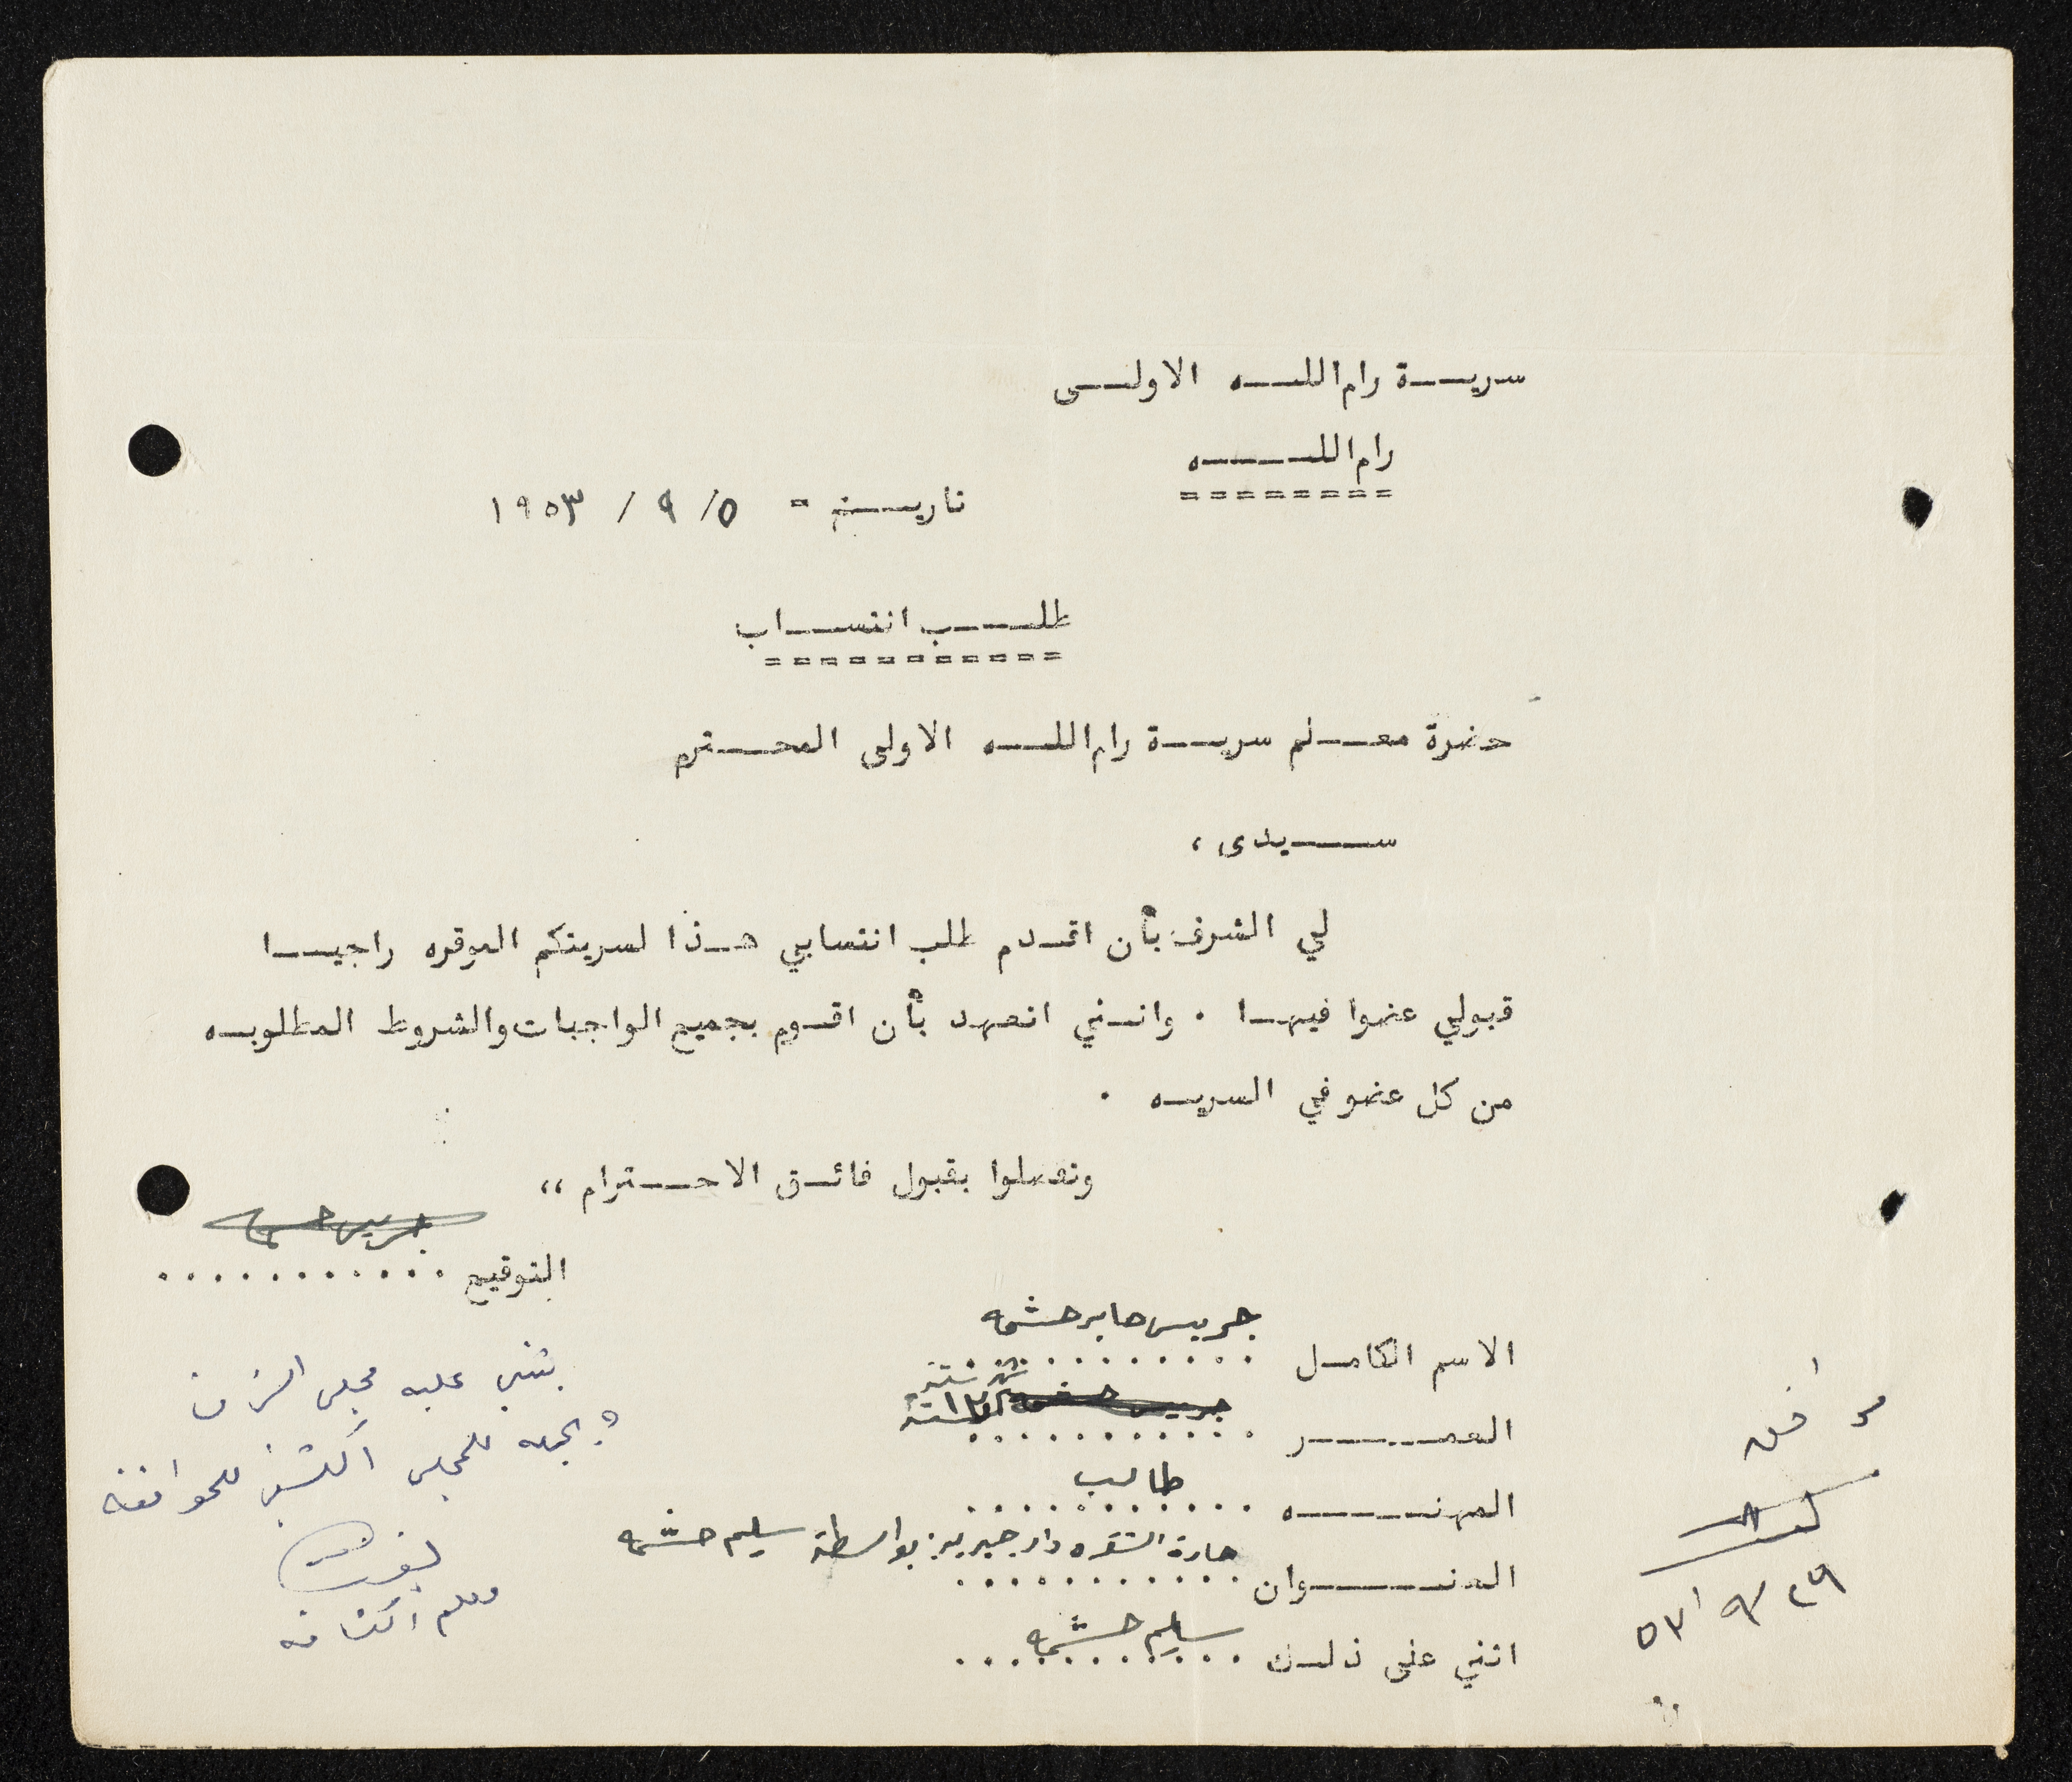 سريـــة رام اللـــه الاولــى
رام اللــــــه
تاريـــخ = ٥/ ٩ / ١٩٥٣
طلـــب انتســـاب
حضرة معــلم سريــة رام اللــه الاولى المحــترم
ســـــيدى ،
لي الشرف بأن اقــدم طلب انتسابي هــذا لسريتكم الموقره راجيــا
قبولي عضوا فيهــا . وانــني اتعهد بأن اقــوم بجميع الواجبات والشروط المطلوبــه
من كل عضو في السريــه .
وتفضلوا بقبول فائــق الاحـــترام ،،
جريس حشمه
التوقيع ...........
الاسم الكامــل جريس جابر حشمه
العمـــــــر سنة
المهنــــــه طالب
العنـــــــوان حارة الشقره دار جبرين بواسطة سليم حشمه
اثني على ذلــك سليم حشمه
يثني عليه مجلس الشرف
للمجلس الكشفي للموافقه
معلم الكشافه
موافق
٢٩/ ٩/ ٥٣